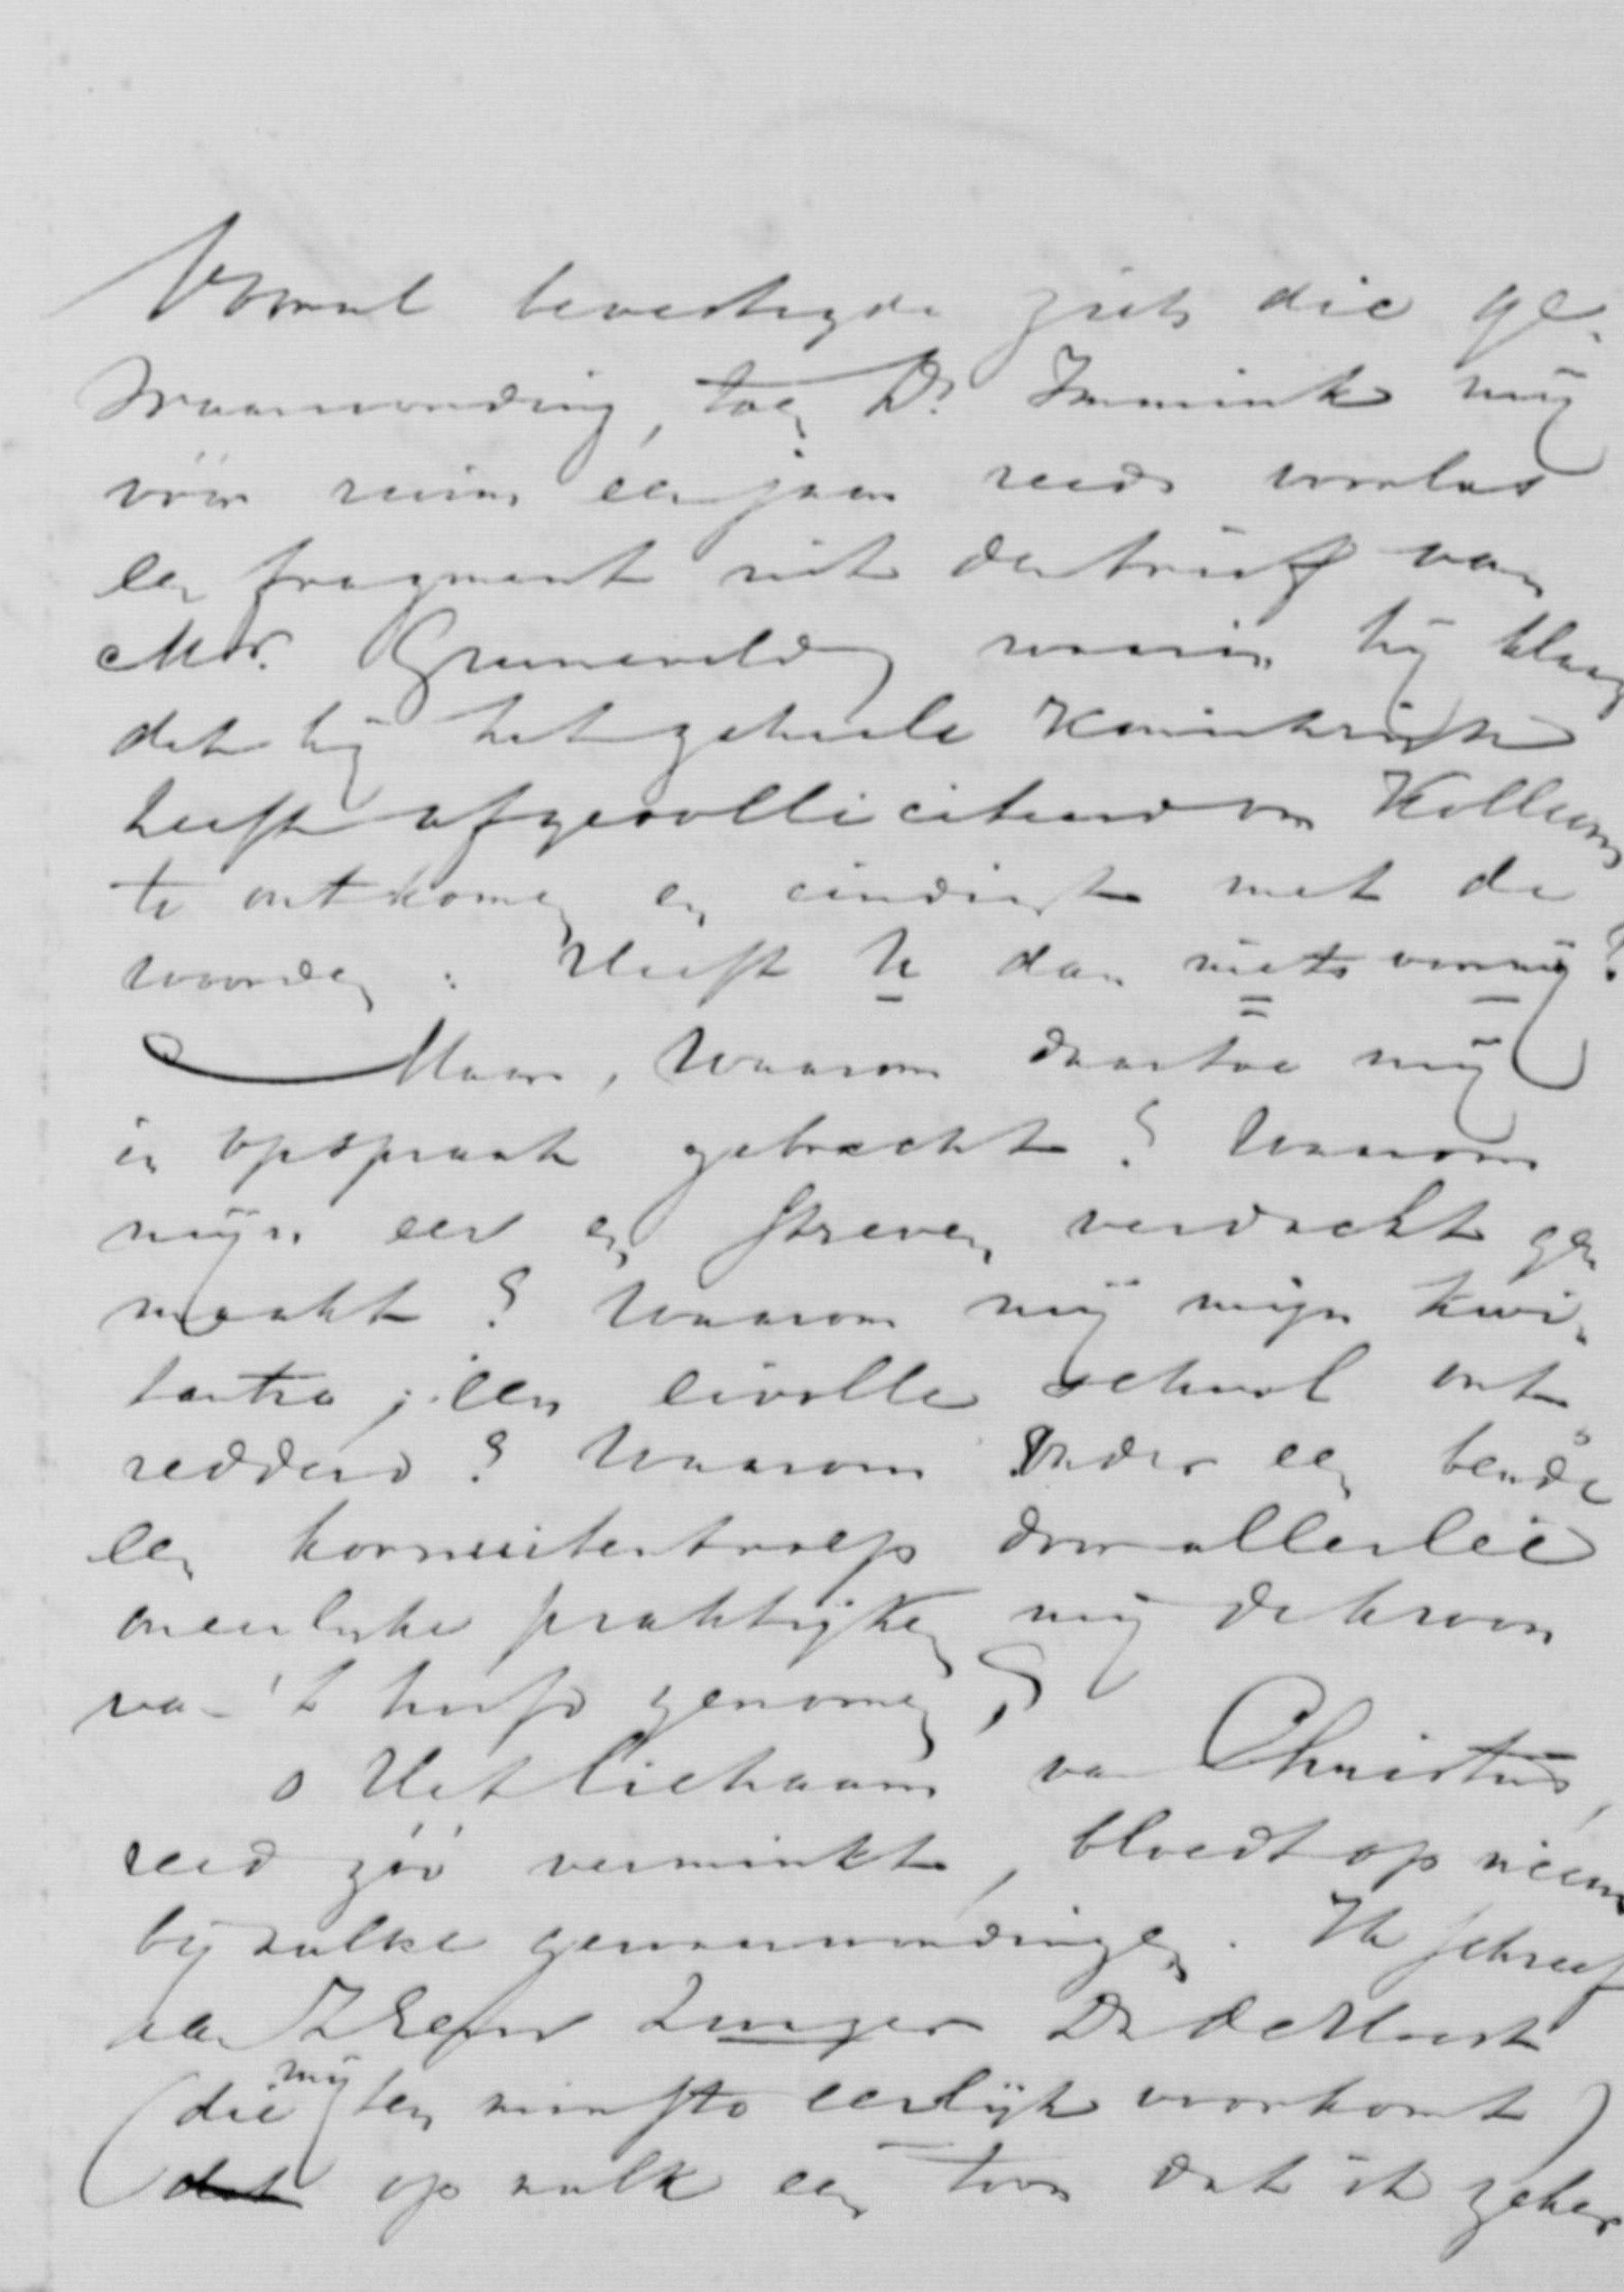 Vooral bevestigde zich die ge-
waarwording, toen Dr. Immink mij
vóór ruim een jaar reeds voorlas
een fragment uit den brief van
Mr. Groeneveld waarin hij klaag
dat hij het geheele Koninkrijk
heeft afgesolliciteerd om Kollum
te ontkomen en eindigt met de
woorden: Heeft U dan niets voor mij?
Maar, waarom daartoe mij
in opspraak gebracht? Waarom
mijn eer en streven verdacht ge
maakt? Waarom mij mijn kwi-
tantie; een eivolle school ont
redderd? Waarom onder een bende
een kornuitentroep door allerlei
oneerlijke praktijken mij de kroon
van 't hoofd genomen?
o Het lichaam van Christus,
reed zóó verminkt, bloedt op nieuw
bij zulke gewaarwordingen. Ik schreef
aan ZEerw Dr de Moest
(die mij ten minste eerlijk voorkomt)
dat op zulk een toon dat ik zeker